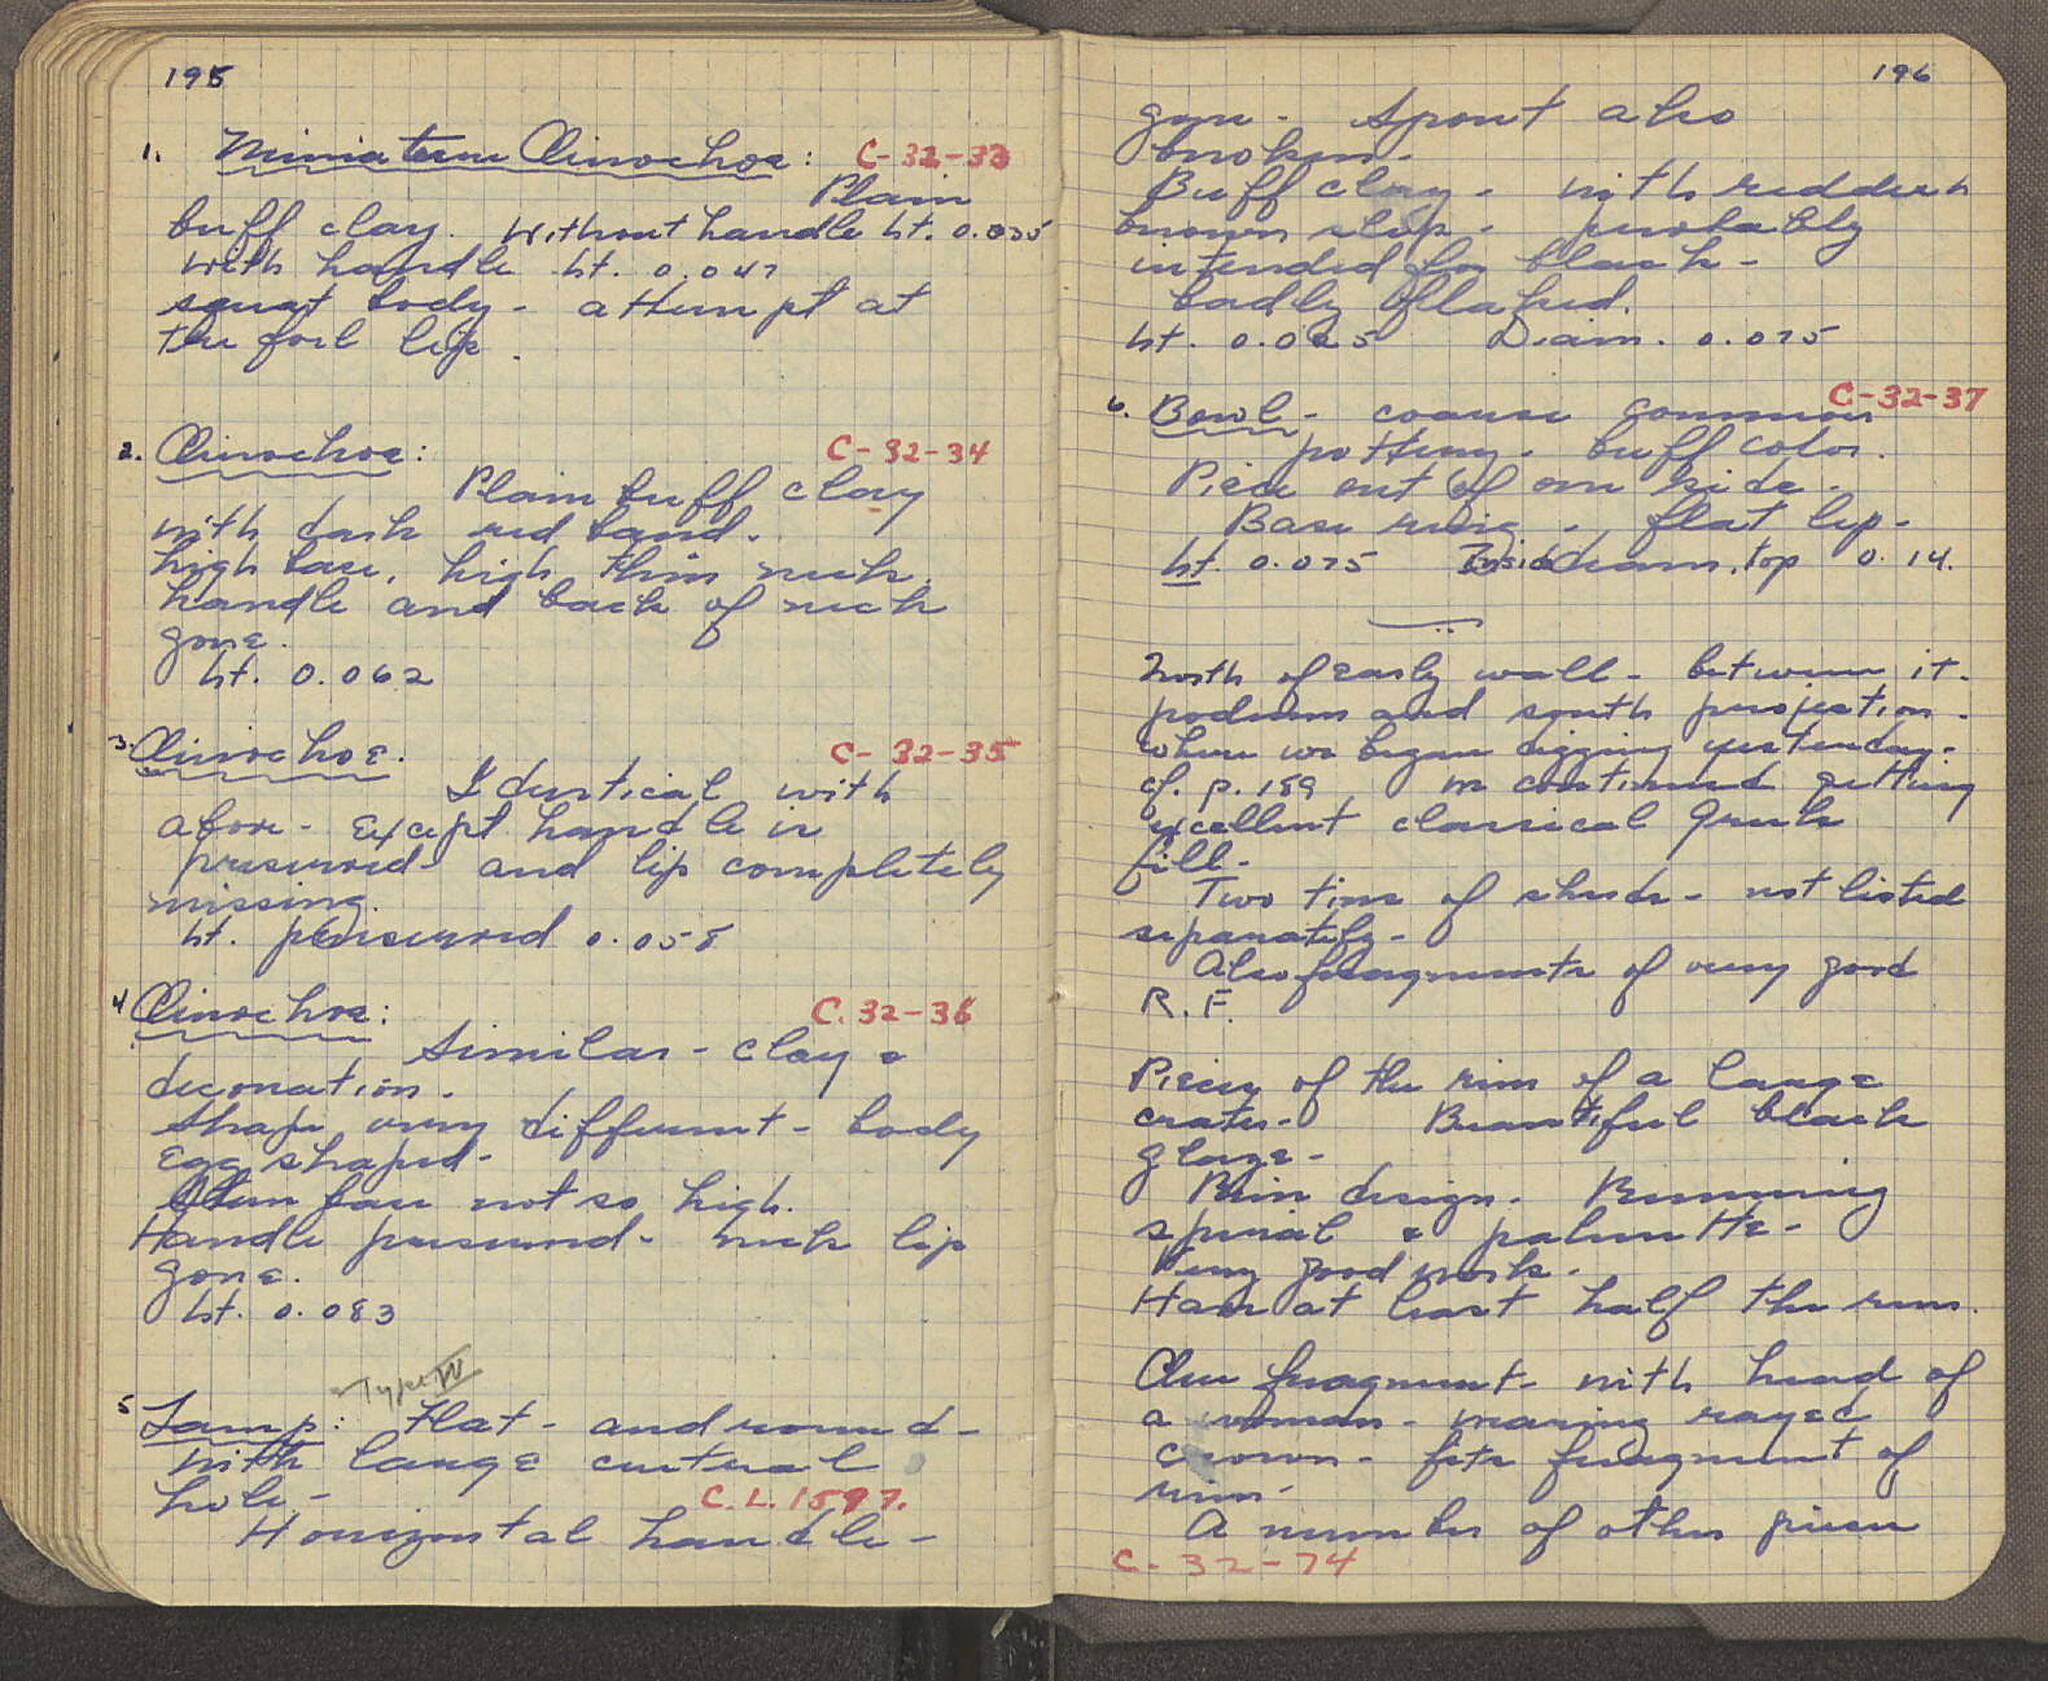 195
1. Miniature Oinochoe: C-32-33
Plain
buff clay. Without handle ht. 0.035
with handle ht. 0.047
squat body - attempt at
trefoil lip.
2. Oinochoe: C-32-34
Plain buff clay
with dark red band.
high base, high thin neck.
handle and back of neck
gone.
ht. 0.062
3. Oinochoe. C-32-35
Identical with
above - except handle is
preserved - and lip completely
missing.
ht. preserved 0.058
4 Oinochoe: C.32-36
Similar - clay &
decoration.
Shape very different - body
egg shaped -
base not so high.
Handle preserved - neck lip
gone.
ht. 0.083
Type IV
5 Lamp: Flat - and round -
with large central
hole - C.L. 1597.
Horizontal handle -
196
gone - Spout also
broken -
Buff clay - with reddish
brown slip - probably
intended for black -
badly flaked.
ht. 0.025 Diam. 0.075
C-32-37
6. Bowl - coarse common
pottery - buff color.
Piece out of one side -
Base ring - flat lip -
ht. 0.075 Inside diam. top 0.14.
North of early wall - between it -
podium and south projection -
where we began digging yesterday -
cf. p. 189 we continued getting
excellent classical Greek
fill -
Two tins of sherds - not listed
separately -
Also fragments of very good
R.F.
Pieces of the rim of a large
crater - Beautiful black
glaze -
Rim design - Running
spiral & palmette -
Very good work -
Have at least half the rim.
One fragment - with head of
a woman - wearing rayed
crown - fits fragment of
rim -
A number of other pieces
C-32-74